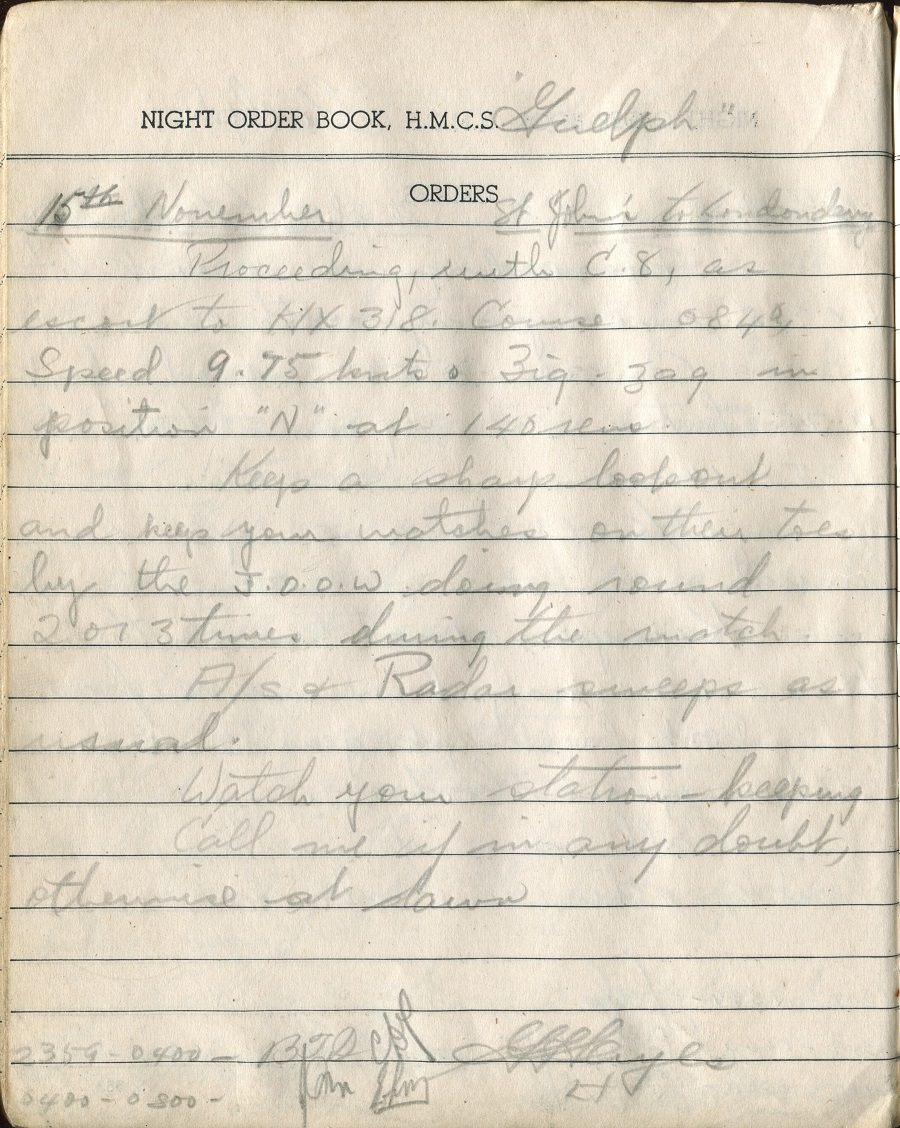 NIGHT ORDER BOOK, H.M.C.S. "Guelph"
ORDERS
15th November St John's to Londonderry
Proceeding, with C.8, as
escort to HX 318. Course 084°,
Speed 9.75 knots. Zig-zag in
position "N" at 140 revs.
Keep a sharp lookout
and keep your watches on their toes
by the J.O.O.W doing round
2 or 3 times during the watch.
A/S & Radar sweeps as
usual.
Watch your station-keeping
Call me if in any doubt,
otherwise at dawn
2359-0400-
0400-0800-